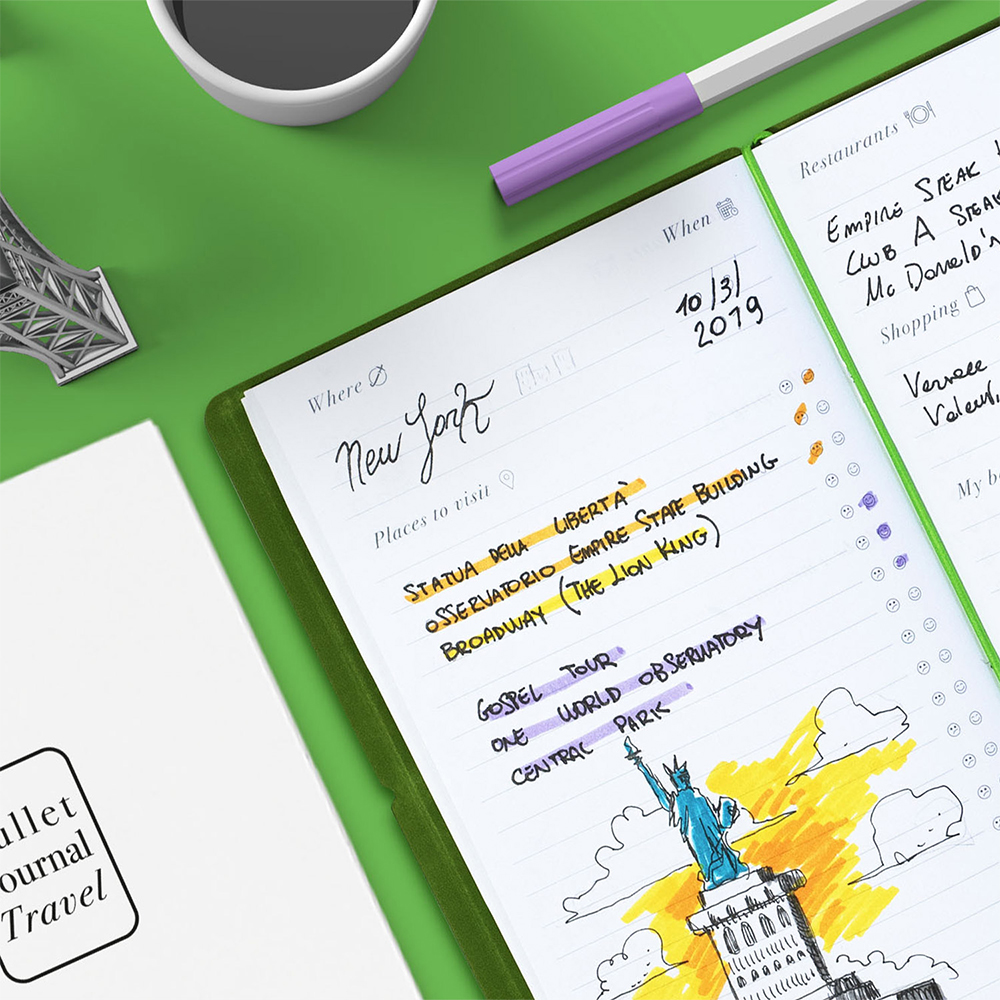 Where
New York
When
10/3/
2019
Places to visit
STATUA DELLA LIBERTÀ
OSSERVATORIO EMPIRE STATE BUILDING
BROADWAY (THE LION KING)
GOSPEL TOUR
ONE WORLD OBSERVATORY
CENTRAL PARK
Restaurants
EMPIRE STEAK
CLUB A STEAK
Mc Donald's
Shopping
My
ournal
Travel